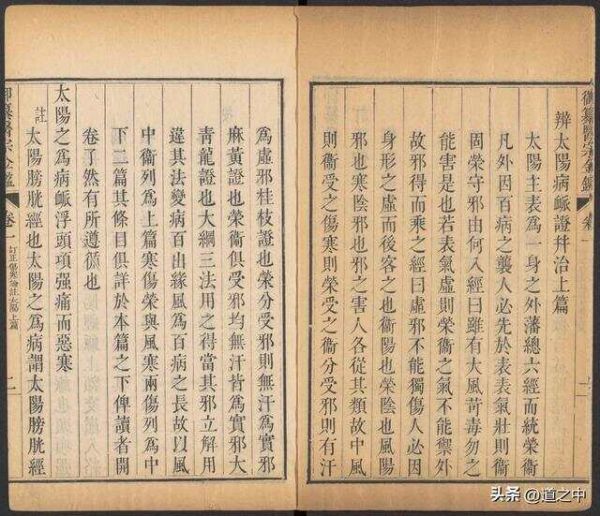 御纂醫宗金鑑
卷一
辨太陽病脈證并治上篇
太陽主表為一身之外藩總六經而統榮衞
凡外因百病之襲人必先於表表氣壯則衞
固榮守邪由何入經曰雖有大風苛毒勿之
能害是也若表氣虛則榮衞之氣不能禦外
故邪得而乘之經曰虛邪不能獨傷人必因
身形之虛而後客之也衞陽也榮陰也風陽
邪也寒陰邪也邪之害人各從其類故中風
則衞受之傷寒則榮受之衞分受邪則有汗
為虛邪桂枝證也榮分受邪則無汗為實邪
麻黃證也榮衞俱受邪均無汗皆為實邪大
青龍證也大綱三法用之得當其邪立解用
違其法變病百出緣風為百病之長故以風
中衞列為上篇寒傷榮與風寒兩傷列為中
下二篇其條目俱詳於本篇之下俾讀者開
卷了然有所遵循也
太陽之為病脈浮頭項强痛而惡寒
註 太陽膀胱經也太陽之為病謂太陽膀胱經
御纂醫宗金鑑
卷一
訂正傷寒論註太陽上篇
二
头条 @道之中